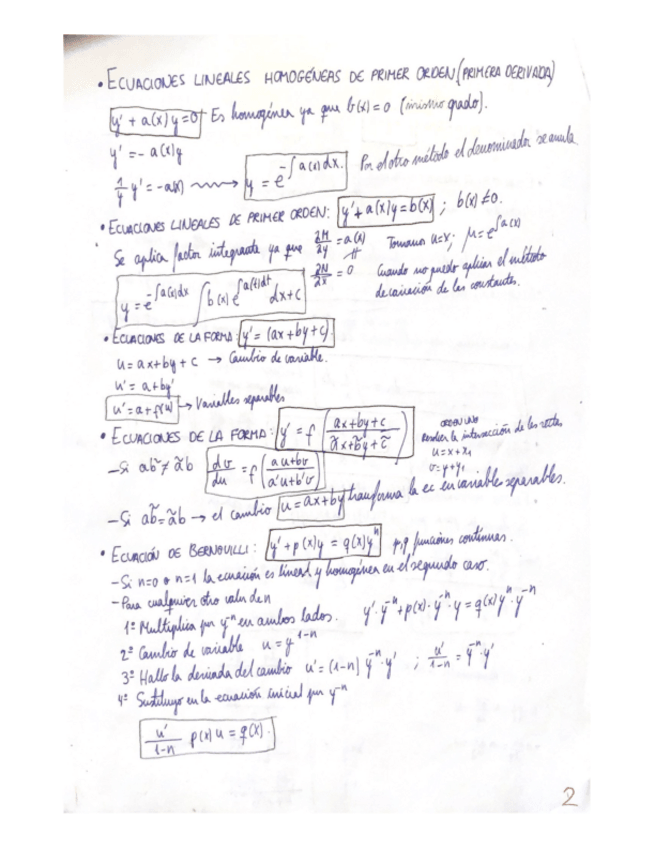 • ECUACIONES LINEALES HOMOGÉNEAS DE PRIMER ORDEN (PRIMERA DERIVADA)
y' + a(x)y = 0 Es homogénea ya que b(x) = 0 (mismo grado).
y' = - a(x)y
1/y y' = -a(x) → y = e^{-∫a(x)dx.} Por el otro método el denominador se anula.
• ECUACIONES LINEALES DE PRIMER ORDEN: y' + a(x)y = b(x) ; b(x) ≠ 0.
Se aplica factor integrante ya que ∂M/∂y = a(x) ∦ ∂N/∂x = 0 Tomamos u=x; μ = e^{∫a(x)}
y = e^{-∫a(x)dx} ∫b(x)e^{∫a(t)dt} dx + c Cuando no puedo aplicar el método
de variación de las constantes.
• ECUACIONES DE LA FORMA: y' = (ax + by + c)
u = ax + by + c → Cambio de variable.
u' = a + by'
u' = a + f(u) → Variables separables
• ECUACIONES DE LA FORMA: y' = f((ax + by + c)/(ãx + b̃y + c̃))
ORDEN UNO
Resolver la intersección de las rectas
u = x + x₁
v = y + y₁
- Si ab̃ ≠ ãb dv/du = f((au + bv)/(a'u + b'v))
- Si ab̃ = ãb → el cambio u = ax + by transforma la ec en variable separables.
• ECUACIÓN DE BERNOUILLI: y' + p(x)y = q(x)y^n p,q funciones continuas.
- Si n=0 o n=1 la ecuación es lineal y homogénea en el segundo caso.
- Para cualquier otro valor de n
1º Multiplica por y^{-n} en ambos lados. y' · y^{-n} + p(x) · y^{-n} · y = q(x) y^n · y^{-n}
2º Cambio de variable u = y^{1-n}
3º Hallo la derivada del cambio u' = (1-n) y^{-n} · y' ; u'/(1-n) = y^{-n} · y'
4º Sustituyo en la ecuación inicial por y^{-n}
u'/(1-n) p(x) u = q(x).
2